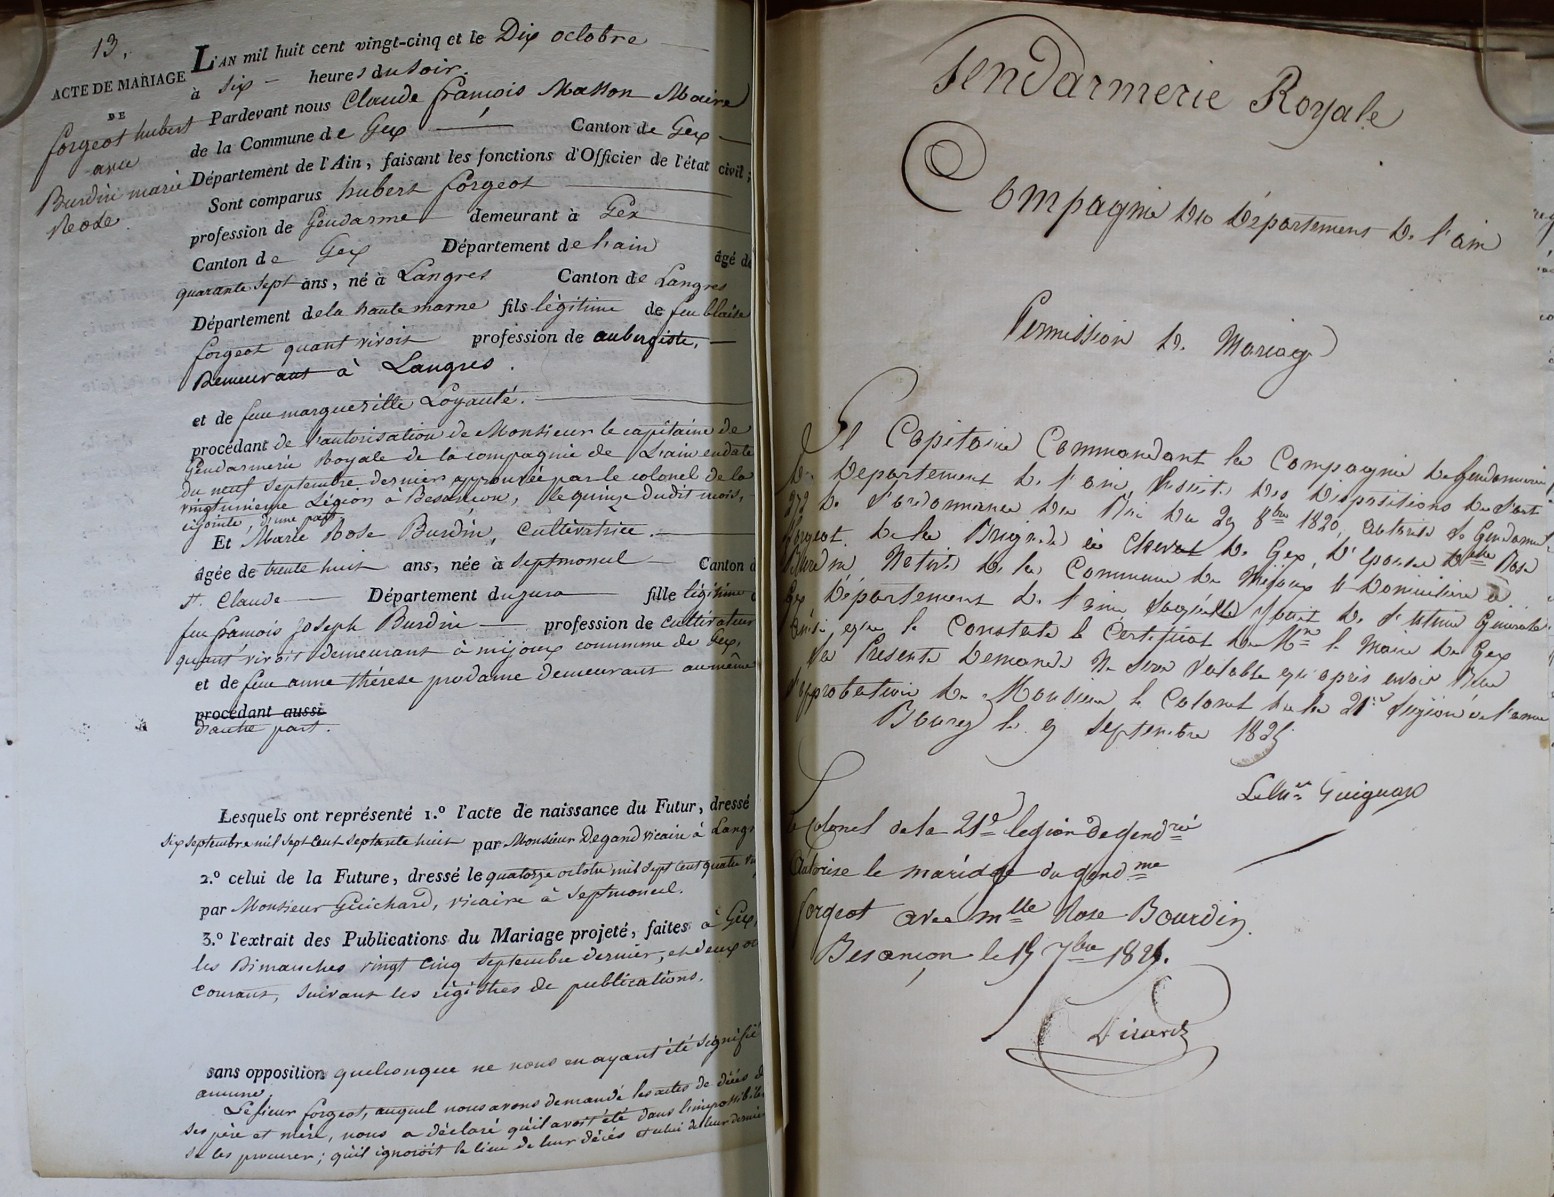 13.
ACTE DE MARIAGE
DE
forgeot hubert
avec
Burdin marie
Rose.
L'AN mil huit cent vingt-cinq et le Dix octobre
à six heures du soir.
Pardevant nous Claude françois Masson Maire
de la Commune de Gex Canton de Gex
Département de l'Ain, faisant les fonctions d'Officier de l'état civil;
Sont comparus hubert forgeot
profession de Gendarme demeurant à Gex
Canton de Gex Département de L'ain âgé de
quarante sept ans, né à Langres Canton de Langres
Département de la haute marne fils légitime de feu blaise
forgeot quant vivoit profession de aubergiste,
Demeurant à Langres.
et de feue marguerille Loyauté.
procédant de l'autorisation de Monsieur le capitaine de
Gendarmerie Royale de la compagnie de L'ain en date
du neuf septembre dernier approuvée par le colonel de la
vingtunieme Légion à Besancon, le quinze dudit mois,
cijointe, d'une part
Et Marie Rose Burdin, Cultivatrice.
âgée de trente huit ans, née à Septmoncel Canton d
St. Claude Département du jura fille légitime d
feu françois joseph Burdin profession de cultivateur
quant vivoit demeurant à mijoux commune de Gex,
et de feue anne thérèse prodame demeurant au même
procédant aussi
D'autre part.
Lesquels ont représenté 1.º l'acte de naissance du Futur, dressé
six septembre mil sept cent septante huit par Monsieur Degand vicaire à Langr
2.º celui de la Future, dressé le quatorze octobre mil sept cent quatre vi
par Monsieur Guichard, vicaire à Septmoncel.
3.º l'extrait des Publications du Mariage projeté, faites à Gex,
les Dimanches vingt cinq septembre dernier, et deux oc
courant, suivant les régistres de publications.
sans opposition quelconque ne nous en ayant été signifié
aucune.
Le sieur forgeot, auquel nous avons demandé les actes de décès de
ses père et mère, nous a déclaré qu'il avoit été dans l'impossibilité
de les procurer; qu'il ignoroit le lieu de leur décès et celui de leur dernier
Gendarmerie Royale
Compagnie du Département de l'ain
Permission de Mariage
Le Capitaine Commandant la Compagnie de Gendarmerie
du Département de l'ain, des Dispositions de l'art
272 de l'ordonnance du Roi du 29 8bre 1820, autorise le Gendarme
forgeot de la Brigade à Cheval de Gex, d'Epouser Delle Rose
Burdin Native de la Commune de Mijoux & Domiciliée à
Gex Département de l'ain
Ainsi que le Constate le Certificat de Mr le Maire de Gex
La Presente Demande Ne sera Valable qu'après avoir
l'approbation de Monsieur le Colonel de la 21e Légion
Bourg le 9 Septembre 1825
Guignard
Le Colonel de la 21e légion de gendrie
Autorise le mariage du gendme
forgeot avec mlle Rose Bourdin.
Besançon le 15 7bre 1825.